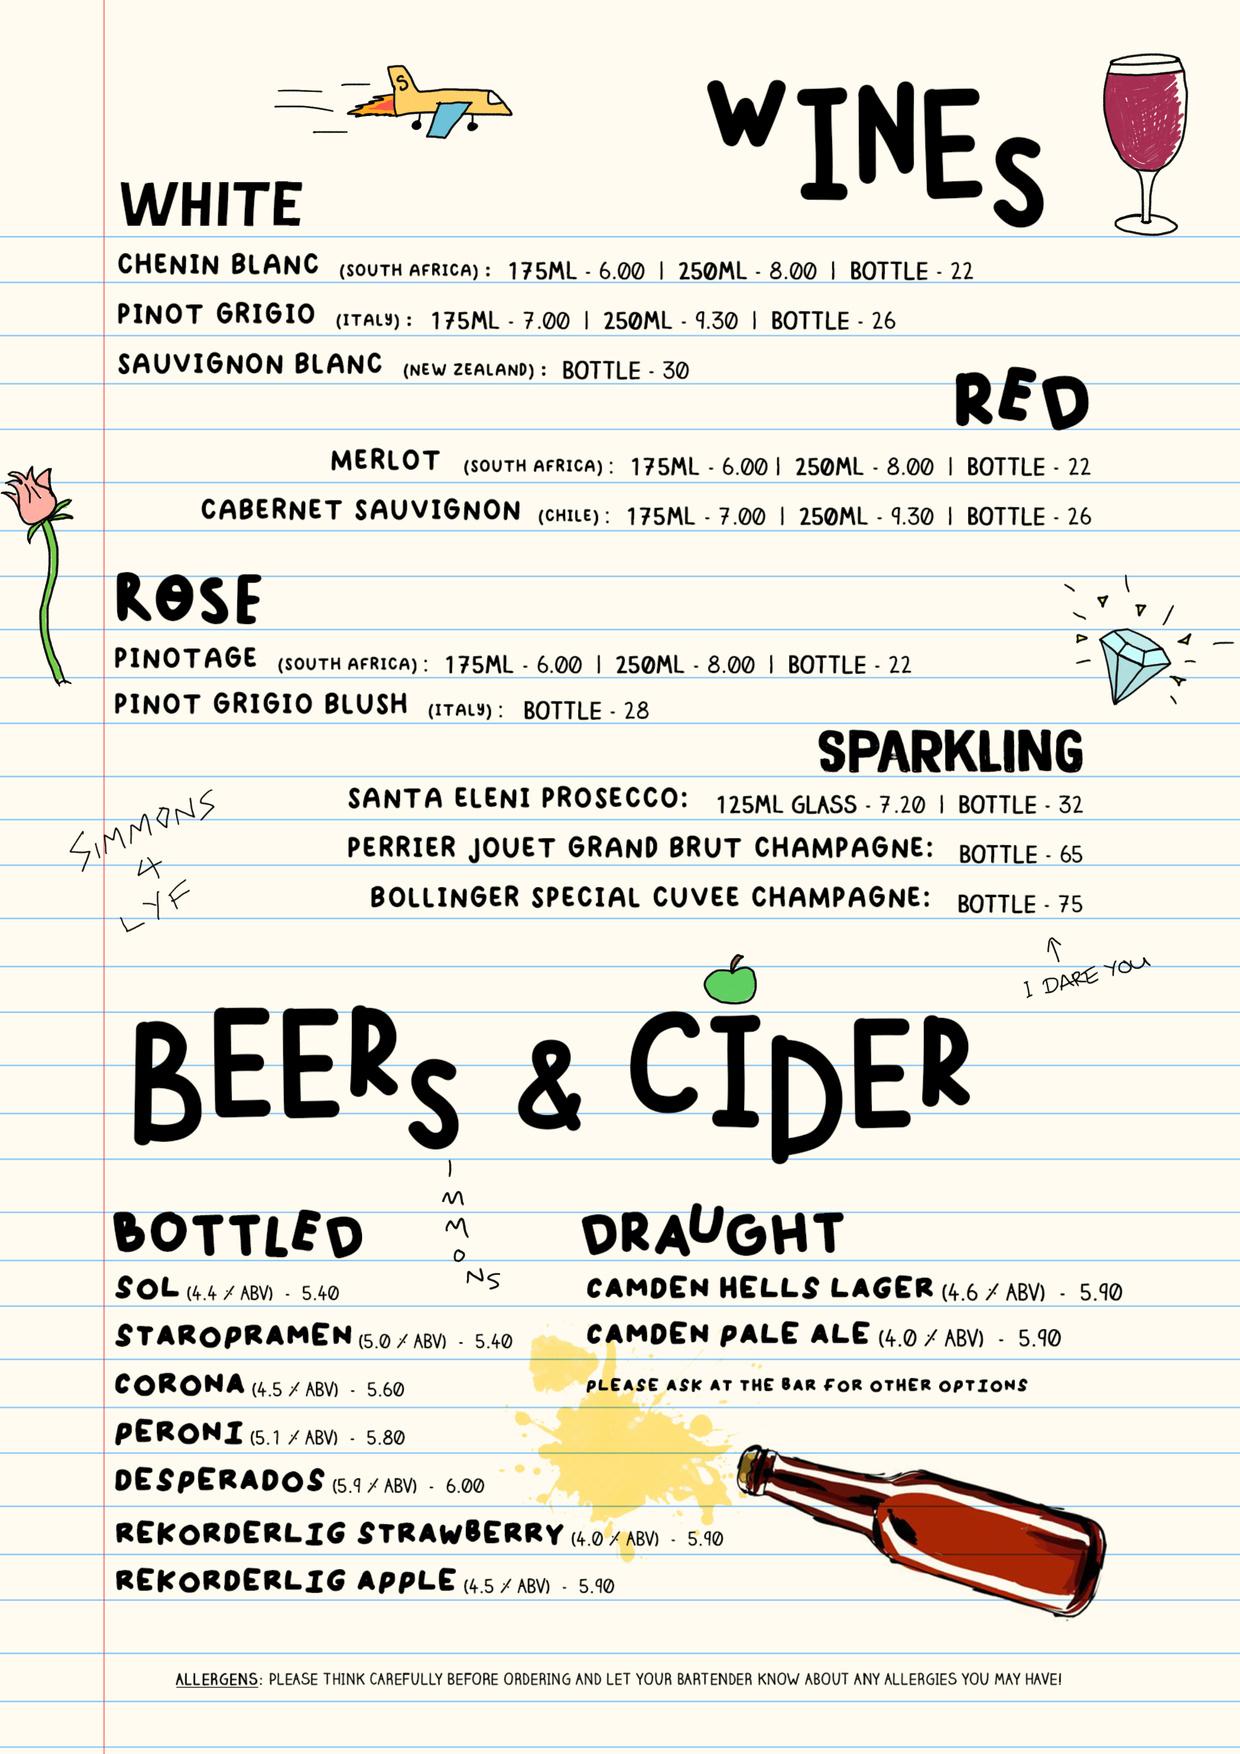 S
WINES
WHITE
CHENIN BLANC (SOUTH AFRICA) : 175ML - 6.00 | 250ML - 8.00 | BOTTLE - 22
PINOT GRIGIO (ITALY) : 175ML - 7.00 | 250ML - 9.30 | BOTTLE - 26
SAUVIGNON BLANC (NEW ZEALAND) : BOTTLE - 30
RED
MERLOT (SOUTH AFRICA) : 175ML - 6.00 | 250ML - 8.00 | BOTTLE - 22
CABERNET SAUVIGNON (CHILE) : 175ML - 7.00 | 250ML - 9.30 | BOTTLE - 26
ROSE
PINOTAGE (SOUTH AFRICA) : 175ML - 6.00 | 250ML - 8.00 | BOTTLE - 22
PINOT GRIGIO BLUSH (ITALY) : BOTTLE - 28
SPARKLING
SANTA ELENI PROSECCO: 125ML GLASS - 7.20 | BOTTLE - 32
PERRIER JOUET GRAND BRUT CHAMPAGNE: BOTTLE - 65
BOLLINGER SPECIAL CUVEE CHAMPAGNE: BOTTLE - 75
SIMMONS
4
LYF
↑
I DARE YOU
BEERS & CIDER
IMMONS
BOTTLED
SOL (4.4 % ABV) - 5.40
STAROPRAMEN (5.0 % ABV) - 5.40
CORONA (4.5 % ABV) - 5.60
PERONI (5.1 % ABV) - 5.80
DESPERADOS (5.9 % ABV) - 6.00
REKORDERLIG STRAWBERRY (4.0 % ABV) - 5.90
REKORDERLIG APPLE (4.5 % ABV) - 5.90
DRAUGHT
CAMDEN HELLS LAGER (4.6 % ABV) - 5.90
CAMDEN PALE ALE (4.0 % ABV) - 5.90
PLEASE ASK AT THE BAR FOR OTHER OPTIONS
ALLERGENS: PLEASE THINK CAREFULLY BEFORE ORDERING AND LET YOUR BARTENDER KNOW ABOUT ANY ALLERGIES YOU MAY HAVE!